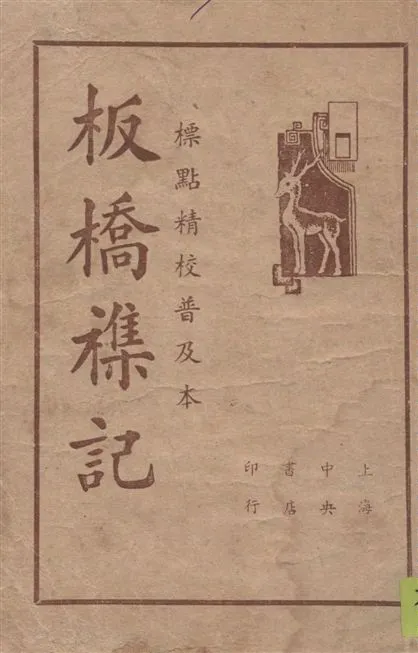 板橋襍記
標點精校普及本
上海
中央
書店
印行